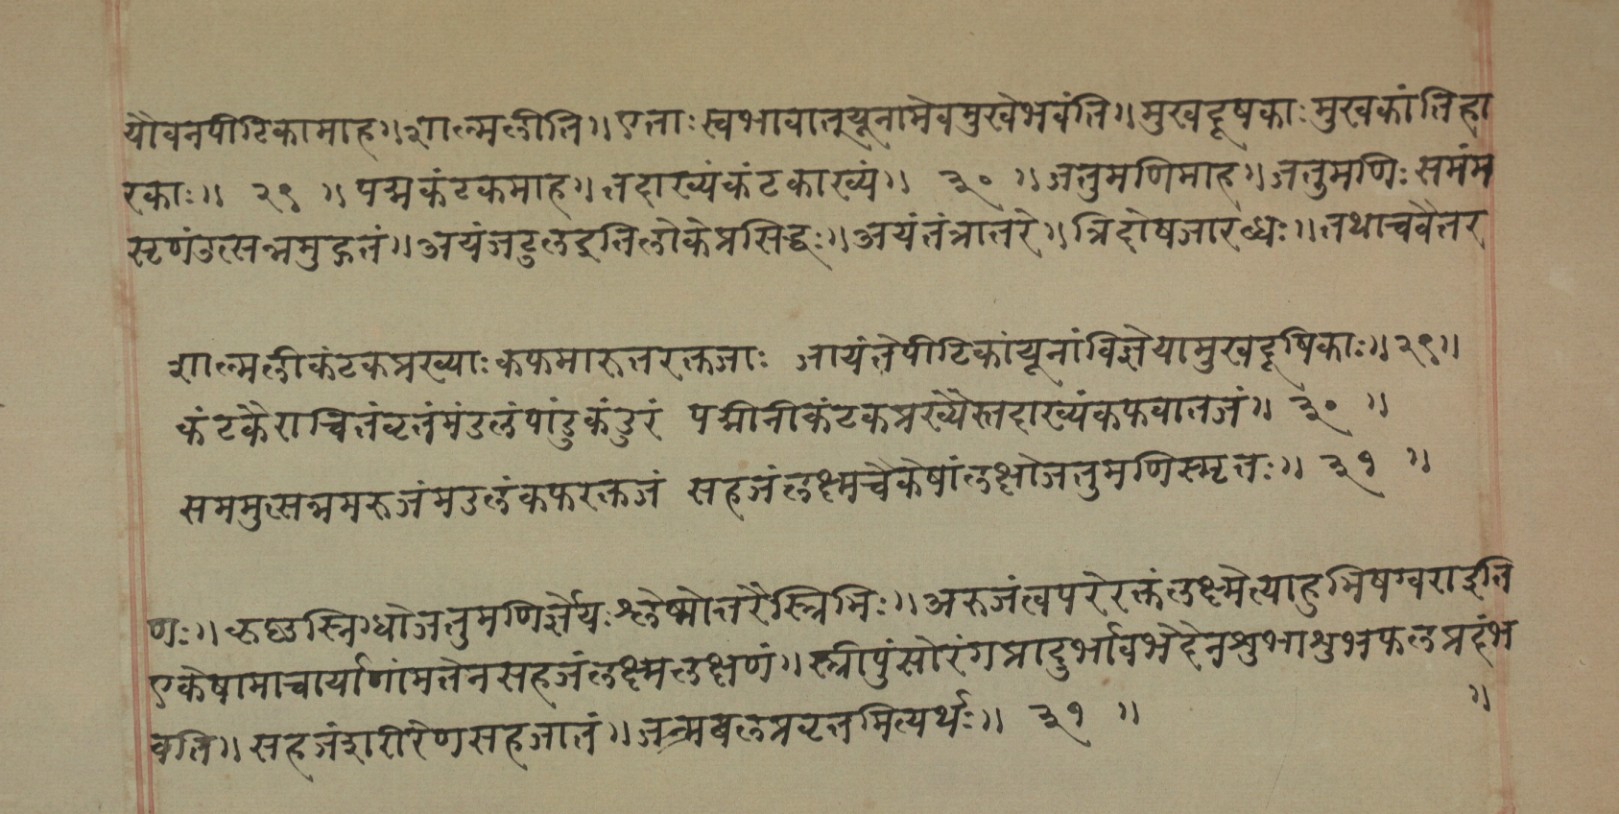 यौवनपीटिकामाह॥शाल्मलीति॥एताःस्वभावात्यूनामेवमुखेभवंति॥मुखदूषकाःमुखकांतिहा
रकाः॥ २९ ॥पद्मकंटकमाह॥तदाख्यंकंटकाख्यं॥ ३० ॥जतुमणिमाह॥जतुमणिःसमंम
सृणंउत्सन्नमुद्गतं॥अयंजटुलइतिलोकेप्रसिद्धः॥अयंतंत्रातरे॥त्रिदोषजारब्धः॥तथाचवैतर
शाल्मलीकंटकप्रख्याःकफमारुतरक्तजाः जायंतेपीटिकांयूनांविज्ञेयामुखदूषिकाः॥२९॥
कंटकैराचितंवृतंमंडलंपांडुकंडुरं पद्मीनीकंटकप्रख्यैस्तदाख्यंकफवातजं॥ ३० ॥
सममुत्सन्नमरुजंमडलंकफरक्तजं सहजंलक्ष्मचैकेषांलक्षोजतुमणिस्मृतः॥ ३१ ॥
णः॥ स्निग्धोजतुमणिर्ज्ञेयःश्लेष्मोत्तरैस्त्रिभिः॥अरुजंत्वपरेरक्तंलक्ष्मेत्याहुभिषग्वराइति
एकेषामाचार्याणांमतेनसहजंलक्ष्मलक्षणं॥स्त्रीपुंसोरंगप्रादुर्भावभेदेनशुभाशुभफलप्रदंभ
वति॥सहजंशरीरेणसहजातं॥जन्मबलप्रवृतमित्यर्थः॥ ३१ ॥ ॥